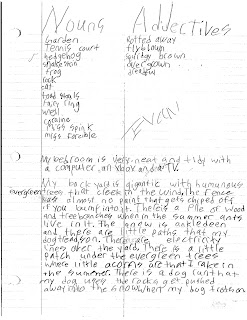 Nouns Addectives
Garden Rotted away
Tennis court flyblown
hedgehog
frog over grown
rock dreadful
cat
toad stools
fairy ring
well
EVAN
Miss Spink
Miss Forcible
My bedroom is very neat and tidy with
a computer, an Xbox and a TV.
My back yaid is gigantic with humunous
evergreen trees that in the wind. The fence
has almost no paint that gets chiped off
if you bump into it. Thereis a Pile of wood
and treebranches when in the summer ants
live in it. The knew is ankledeen
and there are little paths that my
dog There are electricity
lines over the yard. There is a little
patch under the evergreen trees
where little acorns are that I take in
the summer. There is a dog run that
my dog uses the rocks get pushed
away into the snow when my dog